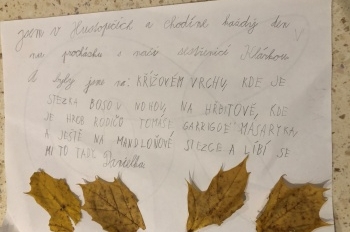 jsem v Hustopečích a chodíme každý den
na procházku s naší sestřenicí Klárkou
A byly jsme na: KŘÍŽOVÉM VRCHU, KDE JE
STEZKA BOSOU NOHOU, NA HŘBITOVĚ, KDE
JE HROB RODIČŮ TOMÁŠE GARRIGUE MASARYKA,
A JEŠTĚ NA MANDLOŇOVÉ STEZCE A LÍBÍ SE
MI TO TADY.